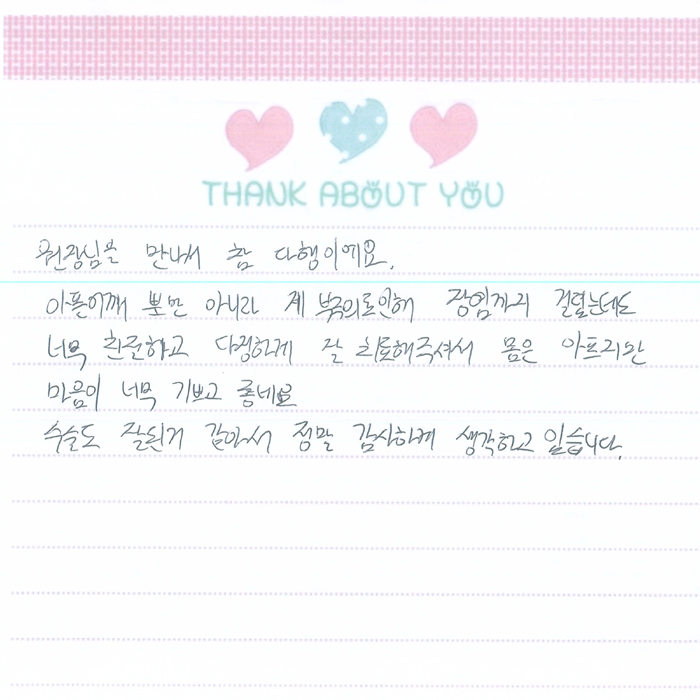 THANK ABOUT YOU
원장님을 만나서 참 다행이에요.
아픈어깨 뿐만 아니라 제 부주의로인해 장염까지 걸렸는데도
너무 친절하고 다정하게 잘 치료해주셔서 몸은 아프지만
마음이 너무 기쁘고 좋네요
수술도 잘된거 같아서 정말 감사하게 생각하고 있습니다.